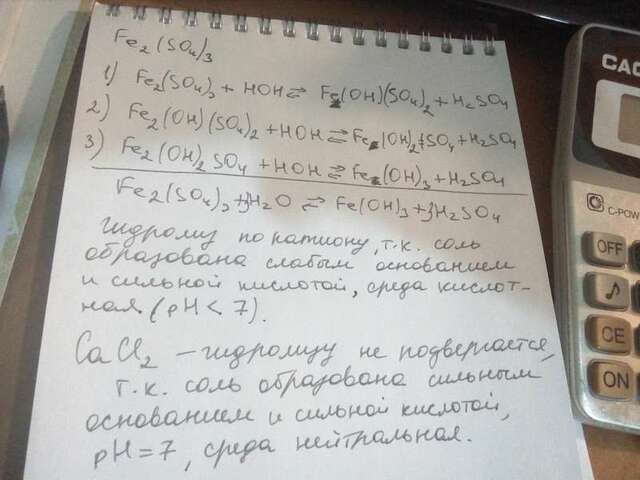 Fe2(SO4)3
1) Fe2(SO4)3 + HOH ⇌ Fe(OH)(SO4)2 + H2SO4
2) Fe2(OH)(SO4)2 + HOH ⇌ Fe(OH)2SO4 + H2SO4
3) Fe2(OH)2SO4 + HOH ⇌ Fe(OH)3 + H2SO4
Fe2(SO4)3 + 3H2O ⇌ Fe(OH)3 + 3H2SO4
гидролиз по катиону, т.к. соль
образована слабым основанием
и сильной кислотой, среда кислот-
ная (pH < 7).
CaCl2 – гидролизу не подвергается,
т.к. соль образована сильным
основанием и сильной кислотой,
pH = 7, среда нейтральная.
C-POW
OFF
♪
CE
ON